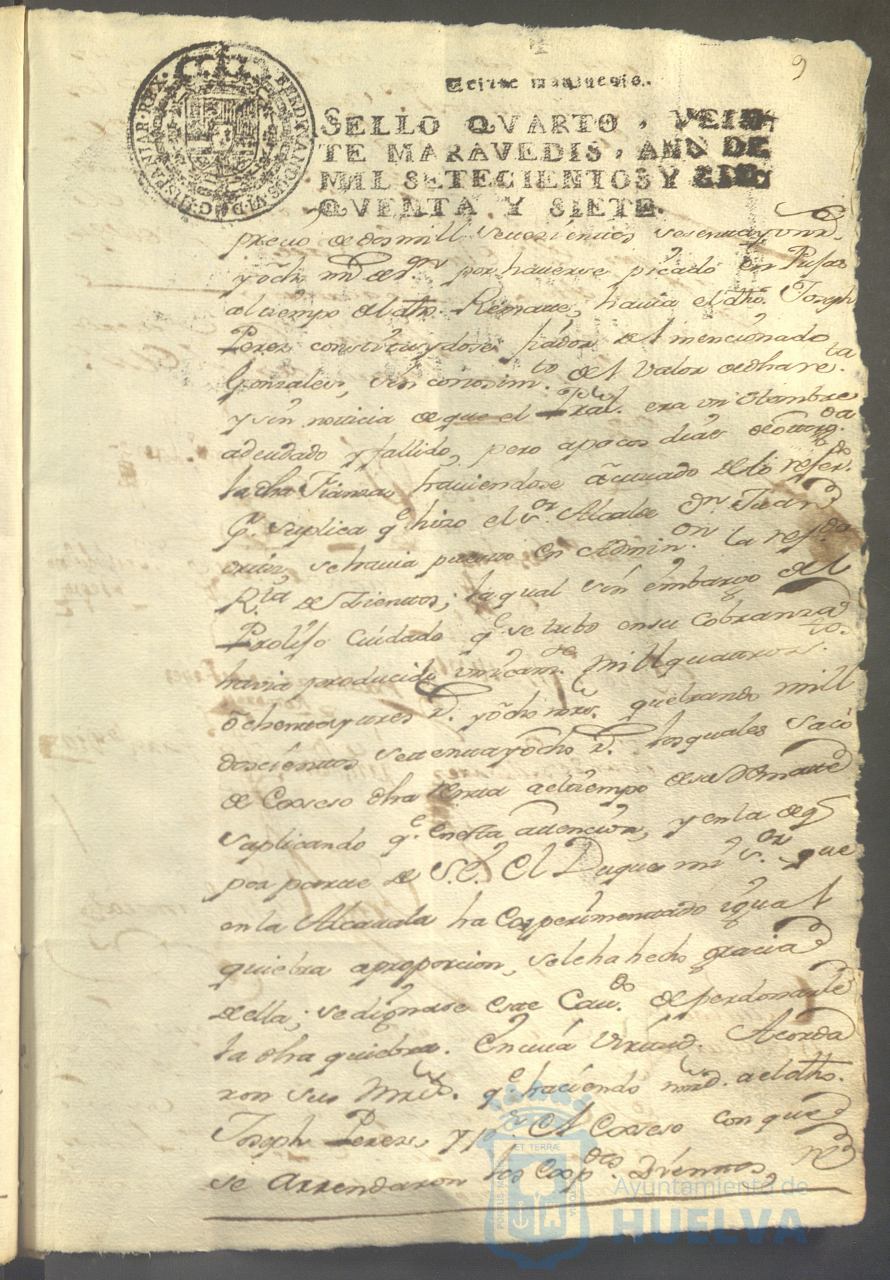 9
Veinte maravedis.
SELLO QVARTO, VEIN-
TE MARAVEDIS, AÑO DE
MIL SETECIENTOS Y CIN-
QVENTA Y SIETE.
FERDINANDUS VI D G HISPANIAR REX
precio de dos mill setecientos sesenta y un rr.
y och mrs de vn por haverse picado en Pujas
al tiempo del dho. Remate, havia el dho. Joseph
Perez constituydose fiador del mencionado
Gonzales, sin conosim.to del valor de dha re.ta
y sin noticia de que el Pral. era un hombre
adeudado y fallido, pero a pocos dias de otorg.da
la dha Fianza haviendose actuado de lo refer.do
q.e suplica q.e hizo el s.or Alcalde Dn. Juan
ortiz, se havia puesto en Admin.on la ref.da
R.ta de Vientos; la qual sin embargo del
Prolijo Cuidado q.e se tubo en su Cobranza
havia producido unicam.te mill quatrocos.to
ochenta y tres r.s y ocho mrs. quebrando mill
doscientos setenta y ocho r.s los quales saco
de Exseso dha renta a el tiempo de su Remate
suplicando q.e en esta attencion, y en la de q.e
por parte de S.E. El Duque mi s.or que
en la Alcavala ha Experimentado igual
quiebra a proporcion, se le ha hecho gracia
de ella; se dignase este Cav.do de perdonarle
la dha quiebra. En cuia virtud. Acorda
ron sus Mrds. q.e haciendo nord. a el dho.
Joseph Perez, y p.r el Exseso con que
se Arrendaron los Exp.dos Vientos, re
ET TERRÆ
PORTUS MARIS
CUSTODIA
Ayuntamiento de
HUELVA